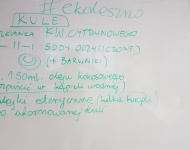 #ekoleszno
KULE
KW. CYTRYNOWEGO
-11- SODY OCZYSZCZONEJ
(+ BARWNIKI)
150 ml. oleju kokosowego
w kąpieli wodnej)
olejki eteryczne (kilka kropli)
uformowanej kuli